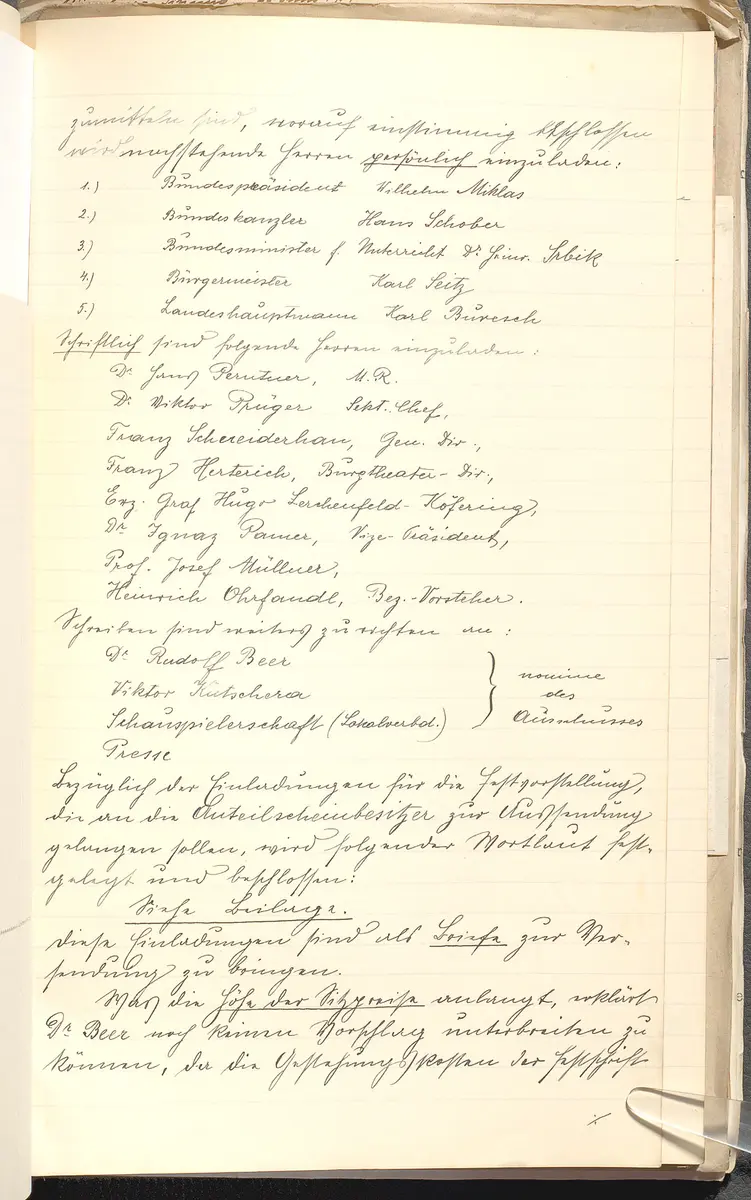 zumitteln sind, worauf einstimmig beschlossen
wird nachstehende Herren persönlich einzuladen:
1.) Bundespräsident Wilhelm Miklas
2.) Bundeskanzler Hans Schober
3.) Bundesminister f. Unterricht Dr. Heinr. Srbik
4.) Bürgermeister Karl Seitz
5.) Landeshauptmann Karl Buresch
Schriftlich sind folgende Herren einzuladen:
Dr. Hans Perntner, M.R.
Dr. Viktor Prüger Sekt. Chef,
Franz Schneiderhan, Gen. Dir.,
Franz Herterich, Burgtheater-Dir.,
Exz. Graf Hugo Lerchenfeld-Köfering,
Dr. Ignaz Pamer, Vize-Präsident,
Prof. Josef Müllner,
Heinrich Ohrfandl, Bez.-Vorsteher.
Schreiben sind weiters zu richten an:
Dr. Rudolf Beer
Viktor Kutschera
Schauspielerschaft (Lokalverbd.)
Presse
nomine
des
Ausschusses
Bezüglich der Einladungen für die Festvorstellung,
die an die Anteilscheinbesitzer zur Aussendung
gelangen sollen, wird folgender Wortlaut fest-
gelegt und beschlossen:
Siehe Beilage.
Diese Einladungen sind als Briefe zur Ver-
sendung zu bringen.
Was die Höhe der Sitzpreise anlangt, erklärt
Dr. Beer noch keinen Vorschlag unterbreiten zu
können, da die Gestehungskosten der Festschrift
./.